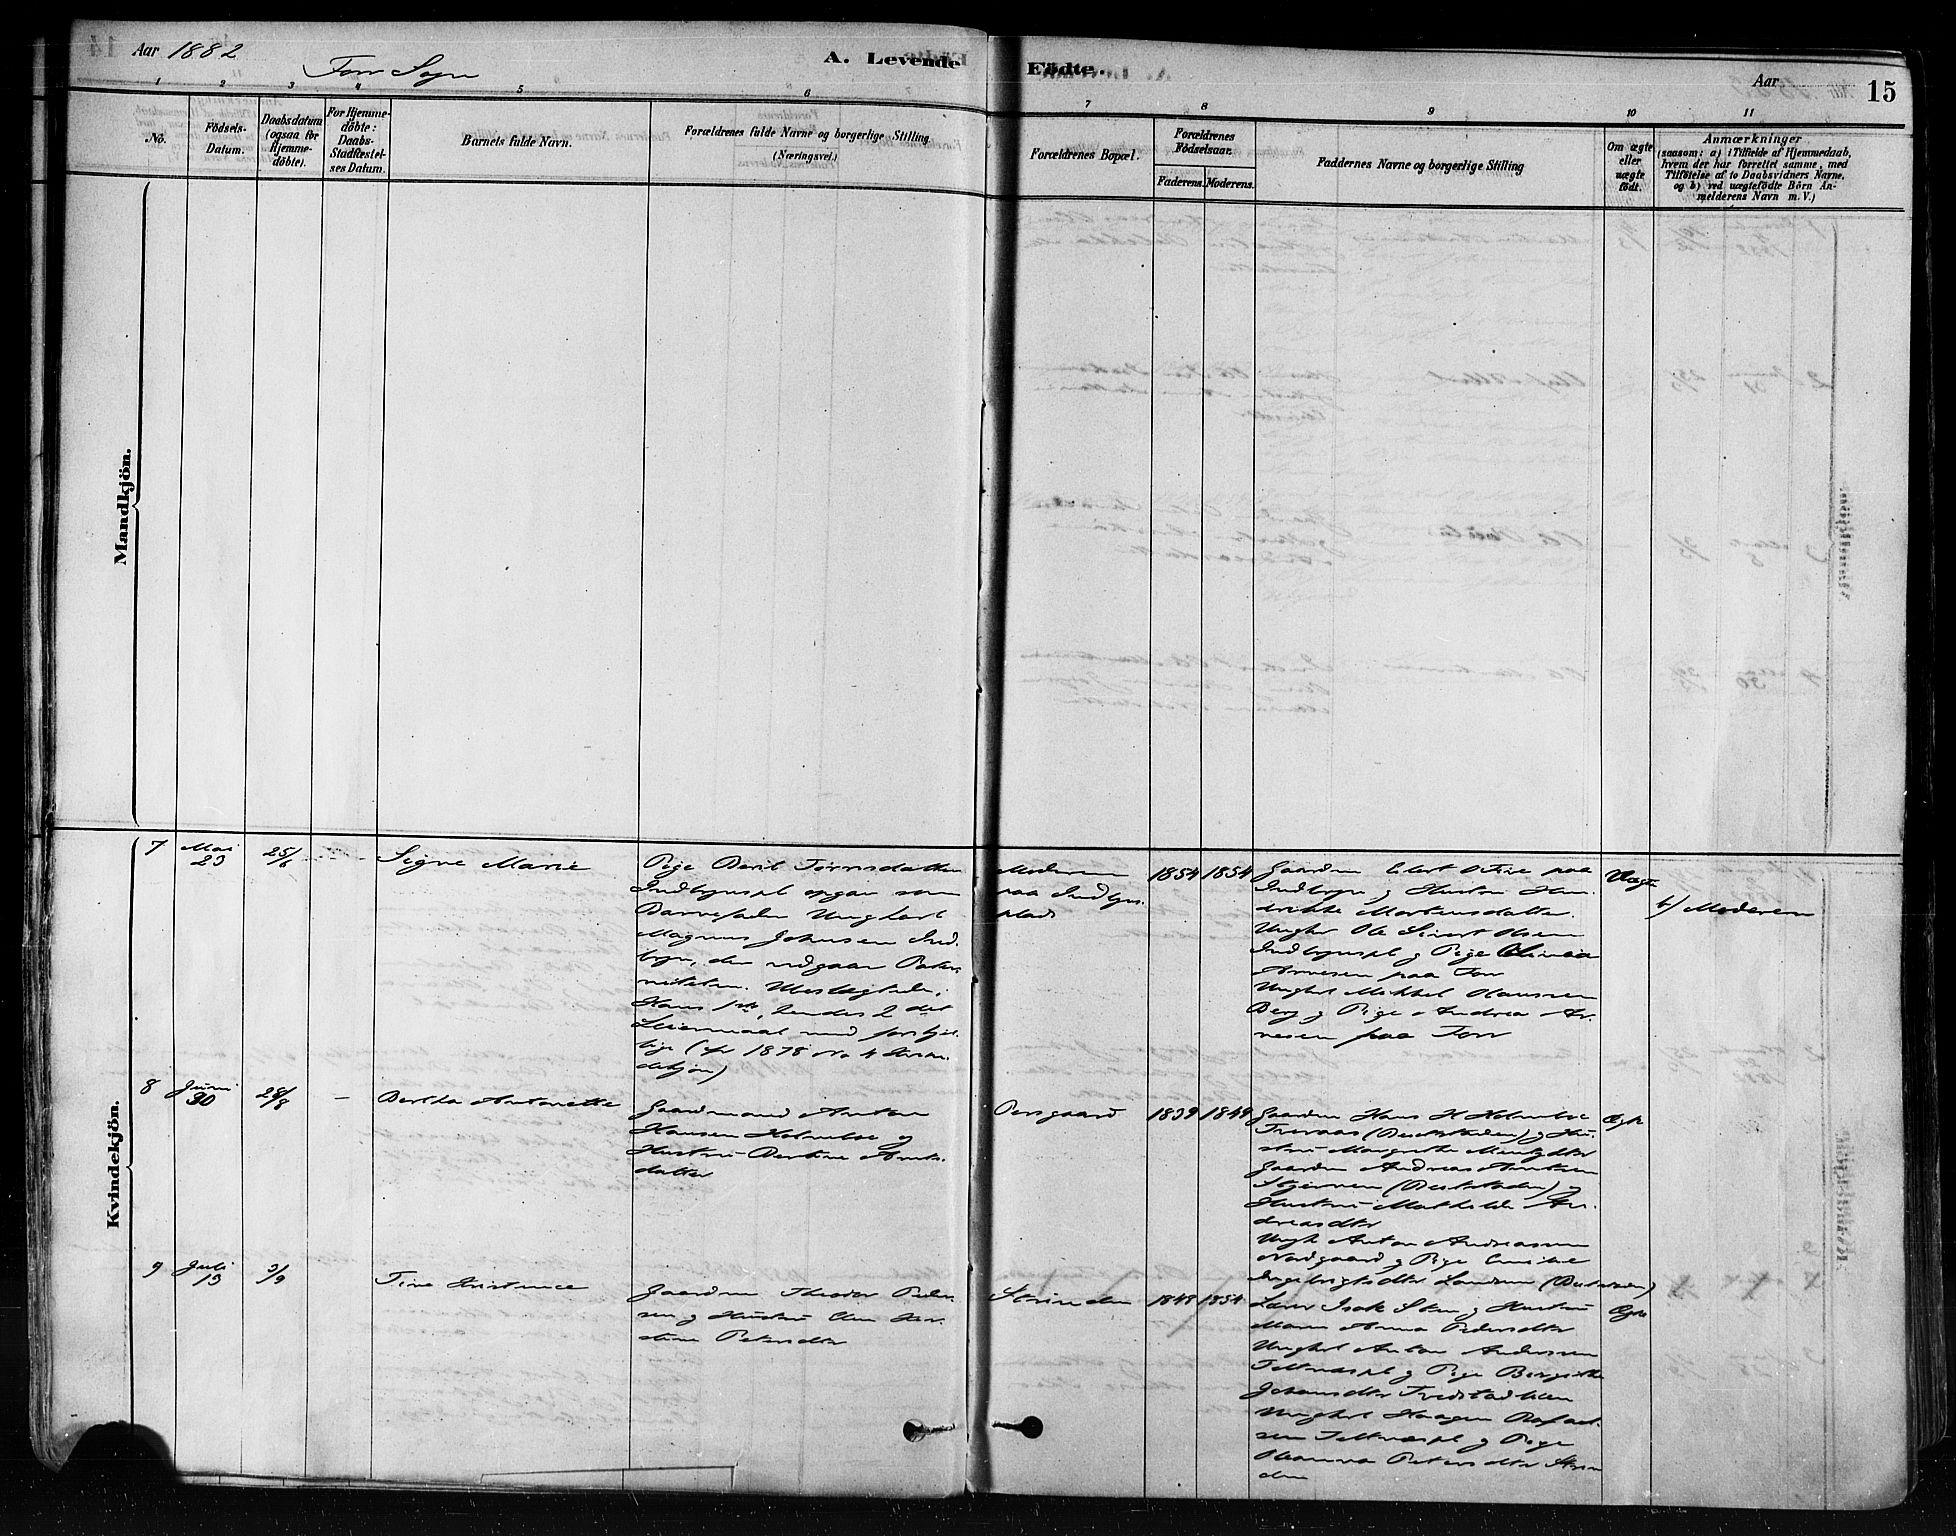 Aar 1882
For Sogn
A. Levende
Födte.
Aar
15
1 2 3 4 5 6 7 8 9 10 11
No.
Födsels-
Datum.
Daabsdatum
(ogsaa for
Hjemme-
döbte).
For Hjemme-
döbte:
Daabs-
Stadfæstel-
ses Datum.
Barnets fulde Navn.
Forældrenes fulde Navne og borgerlige Stilling
(Næringsvei.)
Forældrenes Bopæl.
Forældrenes
Födselsaar.
Faderens. Moderens.
Faddernes Navne og borgerlige Stilling
Om ægte
eller
uægte
födt.
Anmærkninger
(saasom: a) i Tilfælde af Hjemmedaab,
hvem der har forrettet samme, med
Tilföielse af to Daabsvidners Navne,
og b) ved uægtefödte Börn An-
melderens Navn m. V.)
Mandkjön.
Kvindekjön.
7
Mai
23
25/6
Signe Marie
Pige Beril Tørrisdatter
Indbrynspl opgav som
Barnefader Ungkarl
Magnus Johnsen Ind-
bryn, der vedgaar Pater-
niteten.
Hans 1ste, hendes 2det
Leiermaal med forskjel-
lige (cfr 1878 No 4
dekjøn)
Moderen
paa Indbryns-
plads
1854 1854
Gaardm Eilert paa
Indbryn og Hustru Hen-
drikke Mortensdatter.
Ungkr Ole Sivert Olsen
Indbrynspl og Pige Olinea
Arnesen paa For
Ungkl Mikkel Hansen
Berg og Pige Andrea Ar-
nesen paa For
Uægte
b) Moderen
8
Juni
30
28/8
-
Bertha Antonette
Gaardmand Anton
Hansen Holmelse og
Hustru Bertine Arnts-
datter
Persgaard
1839 1849
Gaardm Hans H Holmelse
(Beitstaden) og Hu-
stru Margrethe
Gaardm Andreas Arntsen
(Beitstaden) og
Hustru Mathilde An-
dreasdtr
Ungk Anton Andreassen
Nordgaard og Pige Emilie
Ingebrigtsdtr (Beitstaden)
Ægte
9
Juli
13
3/9
Tine Kristence
Gaardm Theodor Peder-
sen og Hustru Elen Ker-
stine Petersdtr
Strinden
1848 1854
Lærer Isak Sten og Hustru
Maren Anna Pedersdtr
Ungkl Anton Andersen
Teltnæspl og Pige Bergitte
Johansdtr
Ungkl Haagen Rafael-
sen Teltnæspl og Pige
Hanna Petersdtr Strin-
den
Ægte